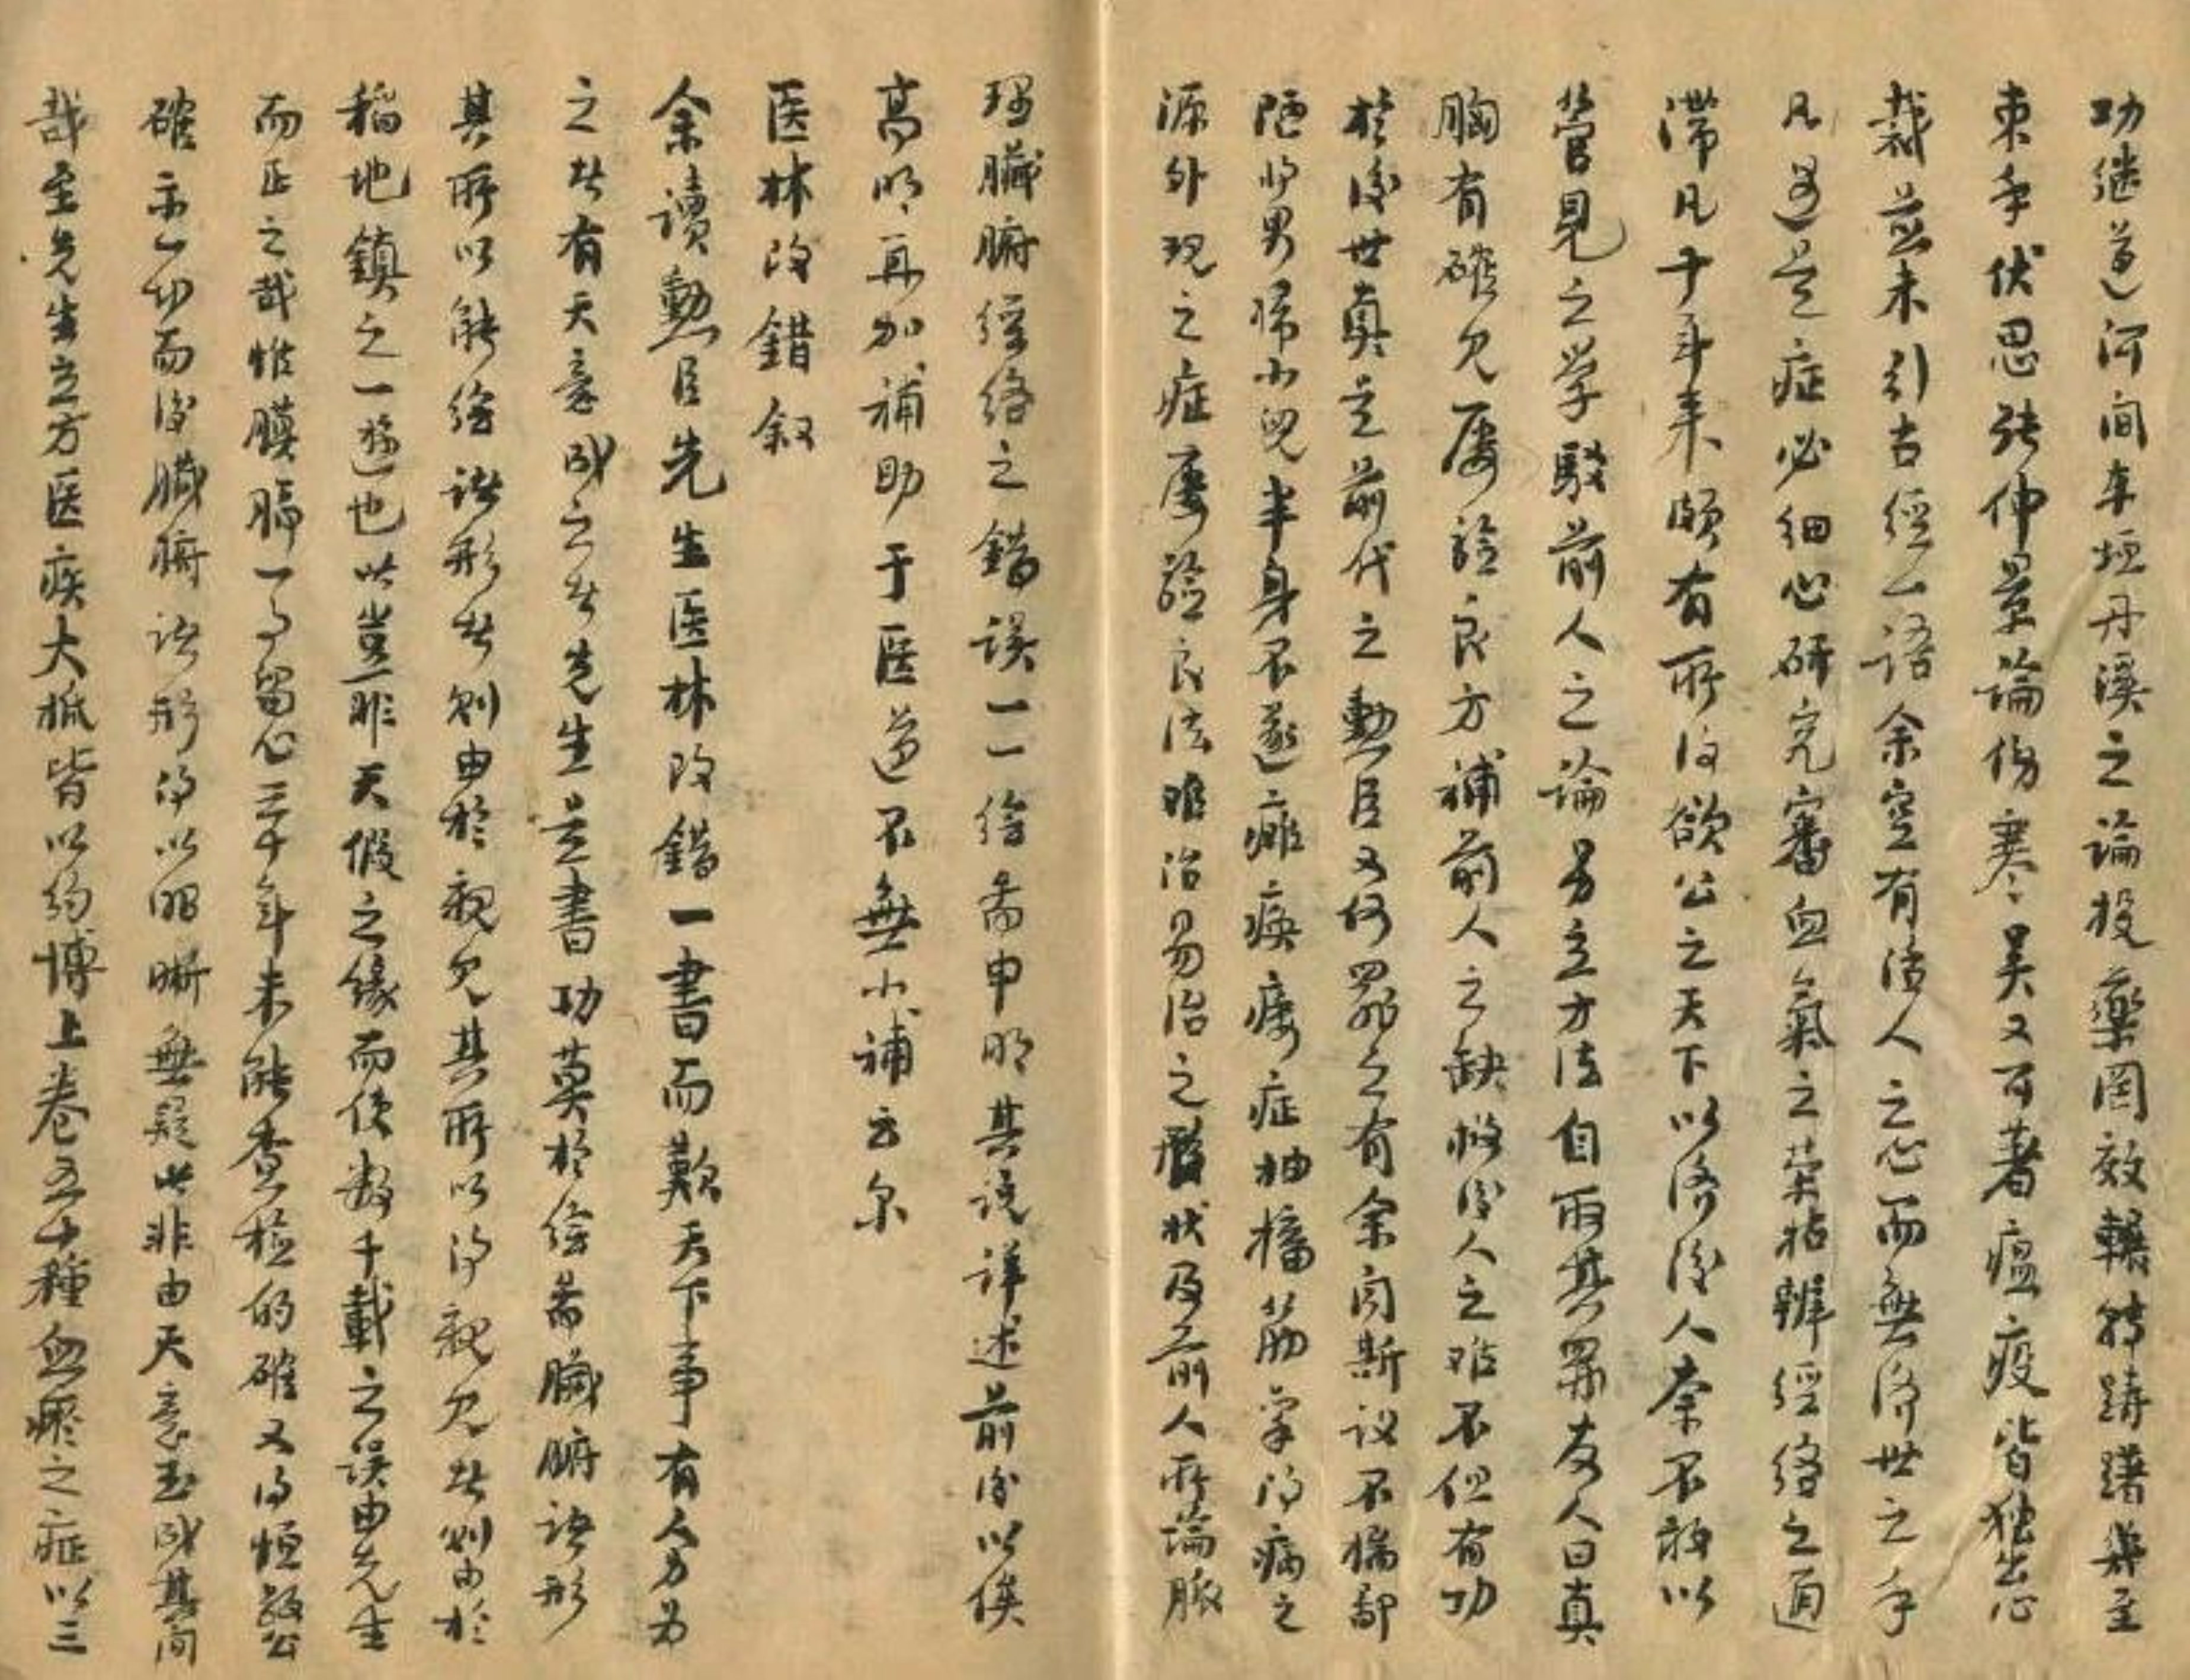 功继遵河间东垣丹溪之論投藥罔效輾转踌躇几至
束手伏思张仲景論伤寒吴又可著瘟疫皆独出心
裁並未引古经一語余空有活人之心而無济世之手
凡遇是症必细心研究審血氣之荣枯辨经络之通
滞凡十年来颇有所得欲公之天下以济后人奈不敢以
管見之学駁前人之論另立方法自取其罪友人曰真
胸有確见屡验良方補前人之缺救后人之难不但有功
於後世真是前代之勳臣又何罪之有余闻斯议不揣鄙
陋将男婦小児半身不遂瘫痪痿症抽搐筋挛得病之
源外现之症屡验良法难治易治之形状及前人所論脈
理臟腑经络之錯误一一绘啚申明其说详述前后以俟
高明再加補助于医道不無小補云尔
医林改錯叙
余讀勲臣先生医林改錯一書而歎天下事有人力为
之者有天意成之者先生是書功莫於绘啚臟腑诸形
其所以能绘诸形者则由於親见其所以得親见者则由於
稻地鎮之一遊也此豈非天假之缘而使数千載之误由先生
而正之哉惟膜膈一事留心三十年未能查验的確又得恒敬公
確示一切而後臟腑诸形得以昭晰無疑此非由天意玉成其间
哉至先生立方医疾大抵皆以约博上卷五十種血瘀之症以三